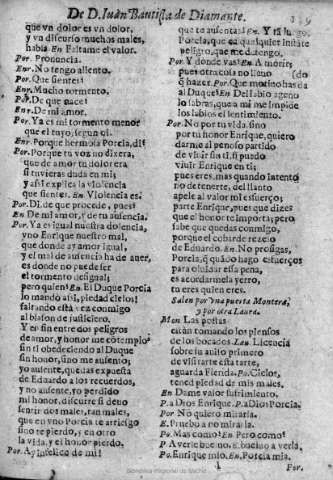 De D. Juan Bautista de Diamante.
que vn dolor es vn dolor,
y vn discurso muchos males,
habla. En. Faltame el valor.
Por. Pronuncia.
Enr. No tengo aliento.
Por. Que sientes?
En. Mucho tormento.
Por. De que nace?
Enr. De mi amor.
Por. Ya es mi tormento menor
que el tuyo, segun vi.
Enr. Porque hermosa Porcia, di?
Por. Porque tu voz no dixera,
que de amor tu dolor era
si tuvieras duda en mi;
y assi explica la violencia
que sientes. En. Violencia es.
Por. Di, de que procede, pues?
En. De mi amor, y de tu ausencia.
Por. Ya es igual nuestra dolencia,
y no Enrique nuestro mal,
que donde ay amor igual,
y el mal de ausencia ha de auer,
es donde no puede ser
el tormento desigual;
pero quien? En. El Duque Porcia
lo mandò assi, piedad cielos!
faltando està
al blason de justiciero.
Y en sin entre dos peligros
de amor, y honor me contemplo
sin ti obedeciendo al Duque
sin honor, sino me ausento;
yo ausente, quedas expuesta
de Eduardo a los recuerdos,
y no ausente, yo perdido
mi honor, discurre si devo
sentir dos males, tan males,
que en vno Porcia te arriesgo
sino te pierdo, y en otro
la vida, y el honor pierdo.
Por. Ay infelice de mi!
que tu ausentas? En. Y tu luego,
Porcia, que en qualquier instante
peligro, que me detengo.
Por. Y donde vas? En. A morir;
pues otra cosa no llevo
q hazer. Por. Que mouiò has dado
al Duque? En. Del sabio ageno
lo sabras, que a mi me impide
los labios el sentimiento.
Por. No por tu vida, sino
por tu honor Enrique, quiero
darme al penoso partido
de viuir sin ti, si puedo
viuir Enrique en ti,
pues eres, mas quando intento
no detenerte, del llanto
apele al valor mi esfuerço;
parte Enrique, pues que dizes
que el honor te importa; pero
sabe que quedas conmigo,
porque el cobarde rezelo
de Eduardo. En. No prosigas,
Porcia, q quãdo hago esfuerços
para oluidar essa pena,
es acordarmela yerro,
tu eres quien eres.
Salen por vna puerta Montera,
y por otra Laura.
Mon. Las postas
estàn tomando los piensos
de los bocados. Lau. Licencia
sobre tu auito primero
de visitarte esta tarde,
aguarda Florida. Po. Cielos,
tened piedad de mis males.
En. Dame valor sufrimiento.
P. a Dios Enrique. P. a Dios Porcia.
Por. No quiero mirarla.
E. Pruebo a no mirarla.
Po. Mas como? En. Pero como?
P. Auerle bueno. E. buelvo a verla,
Po. Enrique mio. En. Porcia mia.
Por.
Biblioteca Regional de Madrid